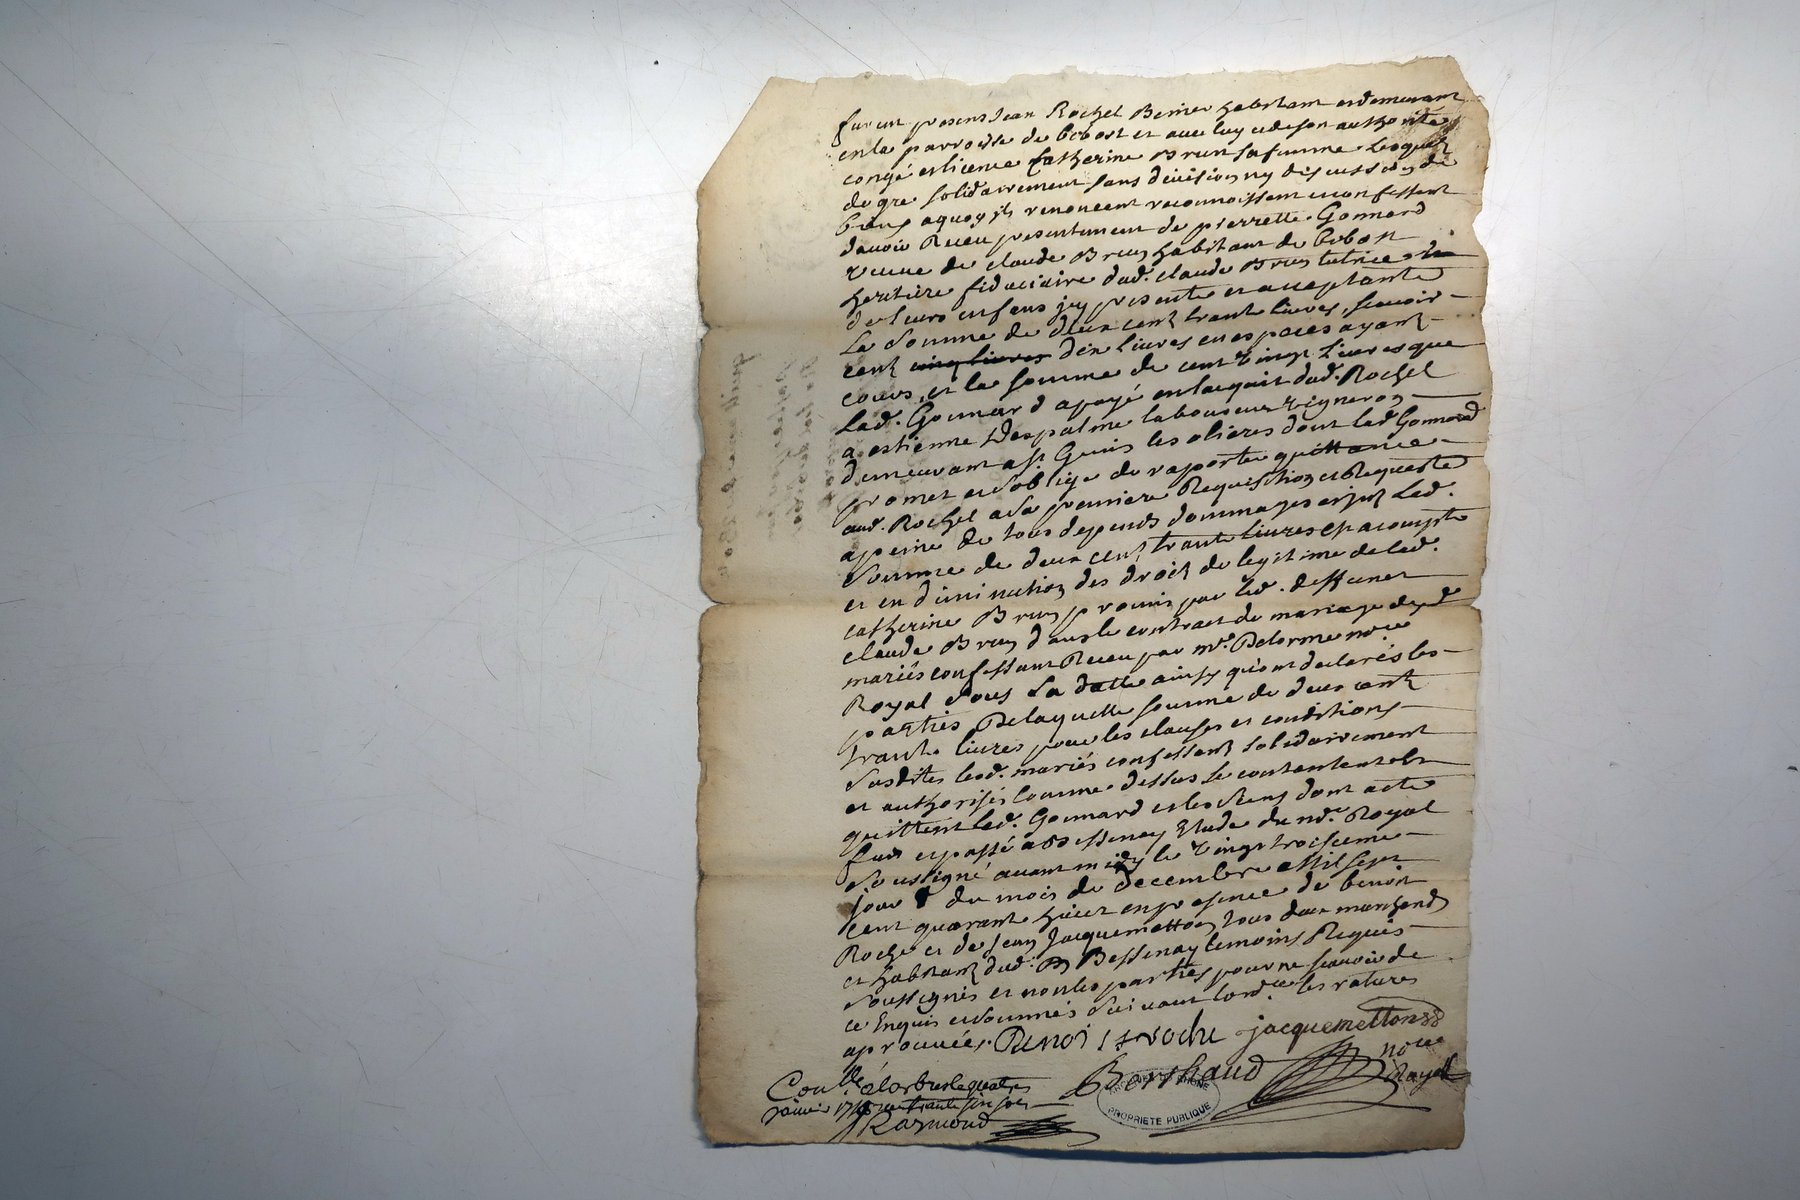 furent presens Jean Rochel Benier habitant et demeurant
en la parroisse de bibost et avec luy et de son authorité
congé et licence Catherine Brun sa femme Lesquels
de gré solidairement sans division ny discussion de
biens aquoy ils renoncent reconnoissent et confessent
davoir Receu presentement de pierrette Gonnard
veuve de claude Brun habitant de bibost
heritiere fiduciaire dud. claude Brun tutrice
de leurs enfans jcy presente et acceptante
La Somme de deux cent trante livres, scavoir
cent cinq livres dix livres en especes ayant
cours, et la somme de cent vingt livres que
Lad. Gonnard a payé en lacquit dud. Rochel
a estienne Despalme laboureur vigneron
demeurant a St Genis les olieres dont lad Gonnard
promet et soblige de raporter quittance
aud. Rochel a sa premiere Requisition et Requeste
a peine de tous depends dommages et jnts Lad.
somme de deux cent trante livres en acompte
et en diminution des droits de legitime de lad.
catherine Brun promis par led. deffunct
claude Brun dans le contract de mariage desd
mariés confessant Receu par me. Delorme nore
Royal sous La datte ainsy quont declarés les
parties De laquelle somme de deux cent
trante livres pour les clauses et conditions
susdites lesd. mariés confessent solidairement
et authorisés comme dessus se contenter et
quittent lad. Gonnard et les siens dont acte
fait et passé a Bessenay Etude du nore. Royal
soussigné avant midy le vingt troisieme
jour du mois de Decembre Mil sept
cent quarante huict en presence de benoit
Roche et de Jean Jacquemetton tous deux marchands
et habitants dud. B Bessenay temoins Requis
soussignés et non les parties pour ne scavoir de
ce Enquis et sommés suivant lord.ce les ratures
aprouvées. Benoist roche jacquemetton
Berthaud nore
Royal
Conllé a larbresle quatre
janvier
Raymond
PROPRIETE PUBLIQUE